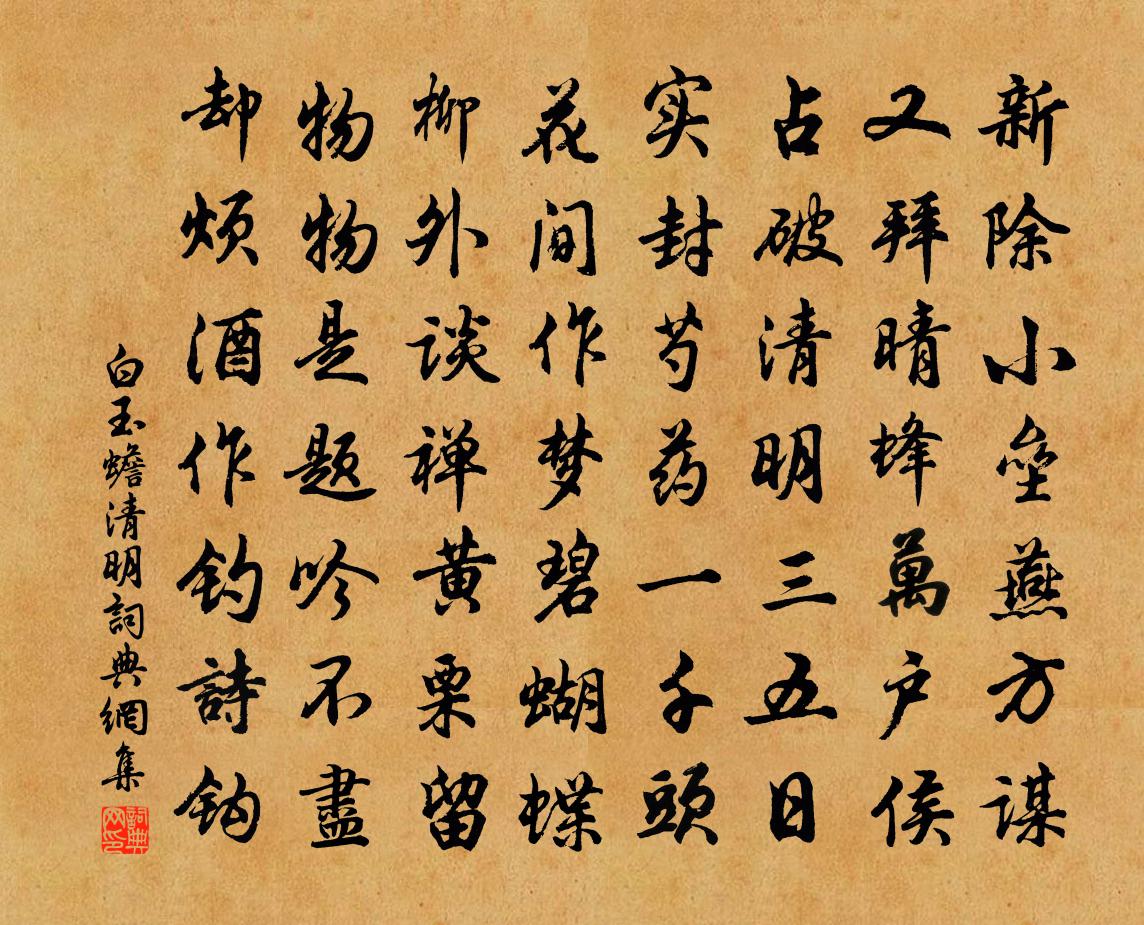 新除小垒燕方谋
又拜晴蜂萬户侯
占破清明三五日
实封芍药一千頭
花间作梦碧蝴蝶
柳外谈禅黄栗留
物物是题吟不盡
却烦酒作钓詩钩
白玉蟾清明詞典網集
詞典网印